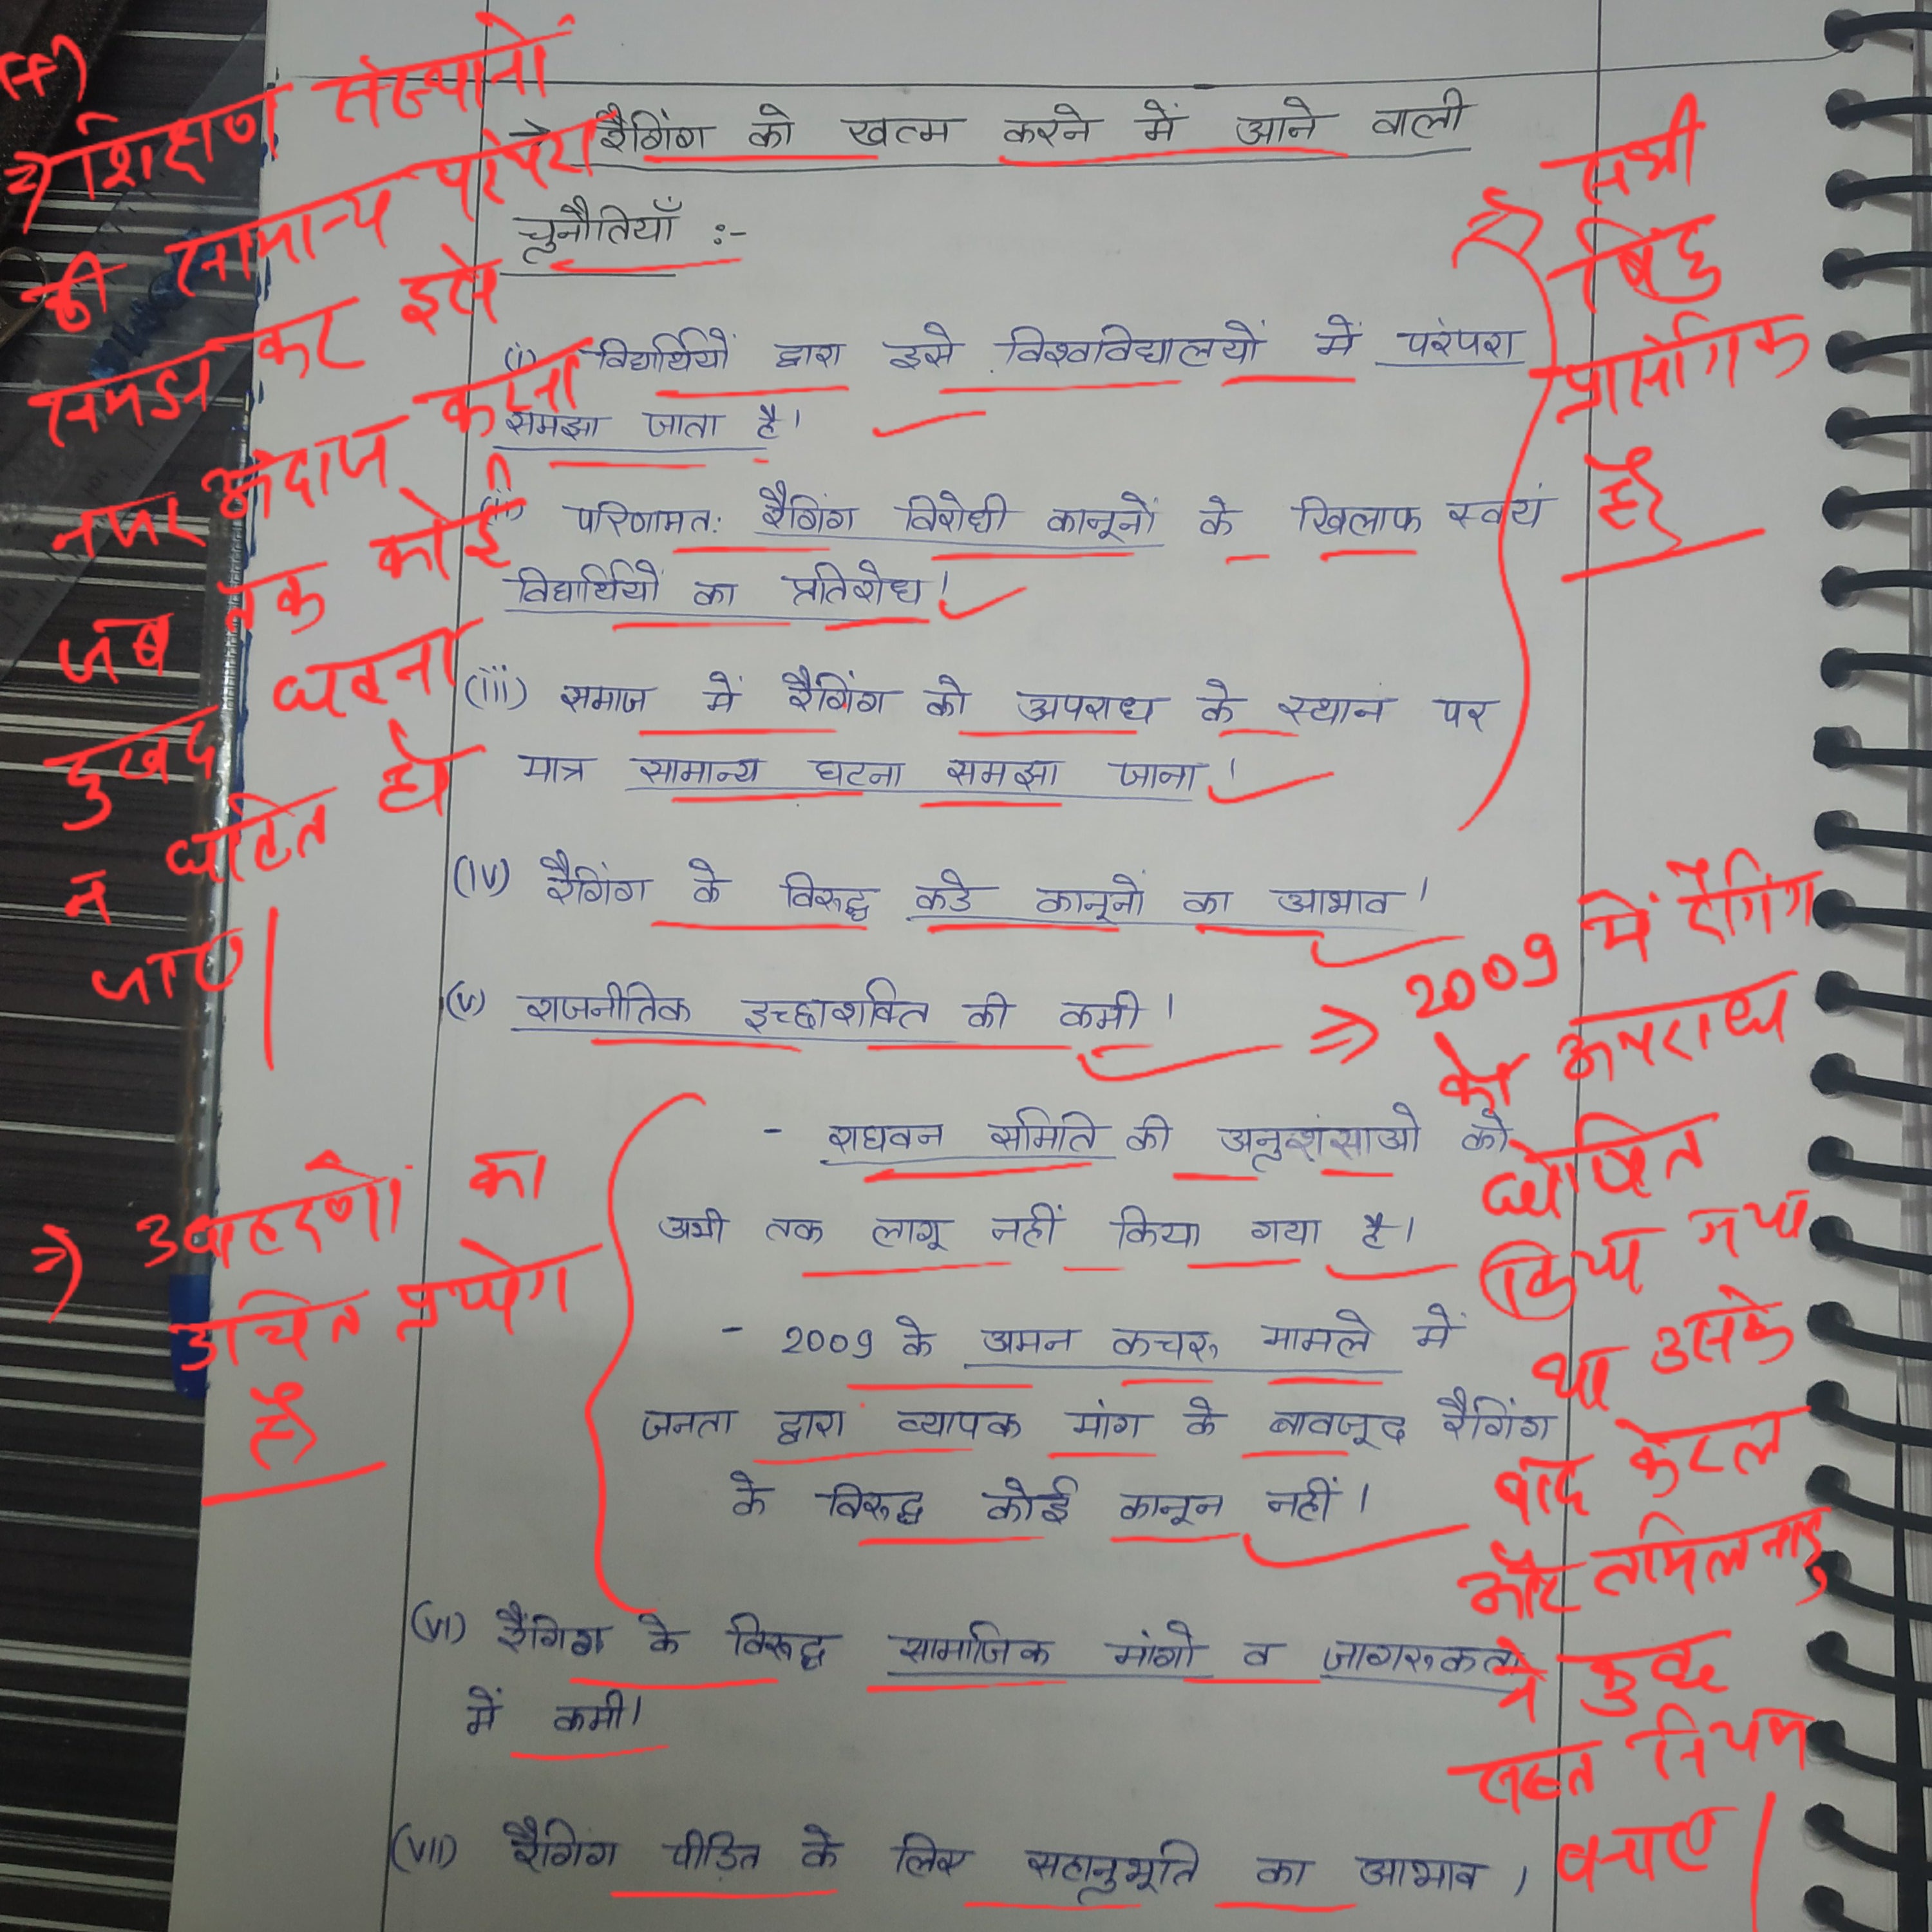 → रैगिंग को खत्म करने में आने वाली
चुनौतियाँ :-
(i) विद्यार्थियों द्वारा इसे विश्वविद्यालयों में परंपरा
समझा जाता है।
(ii) परिणामतः रैगिंग विरोधी कानूनों के खिलाफ स्वयं
विद्यार्थियों का प्रतिरोध।
(iii) समाज में रैगिंग को अपराध के स्थान पर
मात्र सामान्य घटना समझा जाना।
(iv) रैगिंग के विरुद्ध कडे कानूनों का आभाव।
(v) राजनीतिक इच्छाशक्ति की कमी।
- राघवन समिति की अनुशंसाओ को
अभी तक लागू नहीं किया गया है।
- 2009 के अमन कचरू मामले में
जनता द्वारा व्यापक मांग के बावजूद रैगिंग
के विरुद्ध कोई कानून नहीं।
(vi) रैगिंग के विरुद्ध सामाजिक मांगो व जागरूकता
में कमी।
(vii) रैगिंग पीडित के लिए सहानुभूति का आभाव।
(+)
⇒ शिक्षण संस्थानों
की सामान्य परंपरा
समझ कर इसे
नजर अंदाज करना
जब तक कोई
दुखद घटना
न घटित हो
जाए।
⇒ उदाहरणों का
उचित प्रयोग
है
⇒ सभी
बिंदु
प्रासंगिक
है
⇒ 2009 में रैगिंग
को अपराध
घोषित
किया गया
था उसके
बाद केरल
और तमिलनाडु
ने कुछ
सख्त नियम
बनाए।